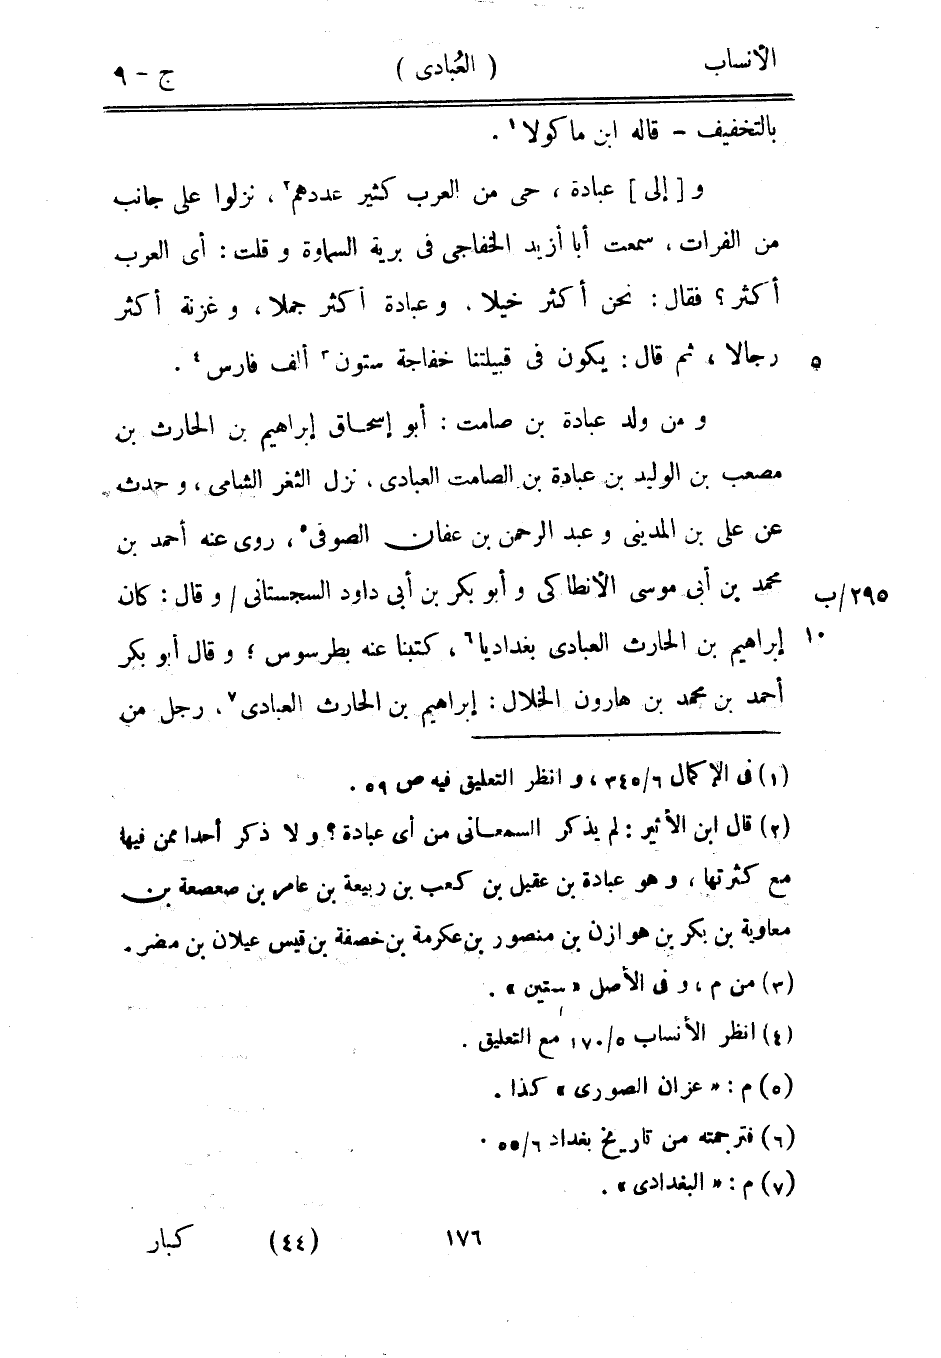 الأنساب ( العُبادى ) ج - ٩
بالتخفيف - قاله ابن ماكولا١ .
و [ إلى ] عبادة ، حى من العرب كثير عددهم٢ ، نزلوا على جانب
من الفرات ، سمعت أبا أزيد الخفاجى فى برية السماوة و قلت : أى العرب
أكثر ؟ فقال : نحن أكثر خيلا . و عبادة أكثر جملا ، و غزنة أكثر
رجالا ، ثم قال : يكون فى قبيلتنا خفاجة ستون٣ ألف فارس٤ . ٥
و من ولد عبادة بن صامت : أبو إسحاق إبراهيم بن الحارث بن
مصعب بن الوليد بن عبادة بن الصامت العبادى ، نزل الثغر الشامى ، و حدث
عن على بن المدينى و عبد الرحمن بن عفان الصوفى٥ ، روى عنه أحمد بن
محمد بن أبى موسى الأنطاكى و أبو بكر بن أبى داود السجستانى / و قال : كان ٢٩٥/ب
إبراهيم بن الحارث العبادى بغداديا٦ ، كتبنا عنه بطرسوس ؛ و قال أبو بكر ١٠
أحمد بن محمد بن هارون الخلال : إبراهيم بن الحارث العبادى٧ ، رجل من
(١) فى الإكمال ٣٤٥/٦ ، و انظر التعليق فيه ص ٥٩ .
(٢) قال ابن الأثير : لم يذكر السمعانى من أى عبادة ؟ و لا ذكر أحدا ممن فيها
مع كثرتها ، و هو عبادة بن عقيل بن كعب بن ربيعة بن عامر بن صعصعة بن
معاوية بن بكر بن هوازن بن منصور بن عكرمة بن خصفة بن قيس عيلان بن مضر .
(٣) من م ، و فى الأصل « ستين » .
(٤) انظر الأنساب ١٧٠/٥ مع التعليق .
(٥) م : « عزان الصورى » كذا .
(٦) فترجمته من تاريخ بغداد ٥٥/٦ .
(٧) م : « البغدادى » .
١٧٦ (٤٤) كبار